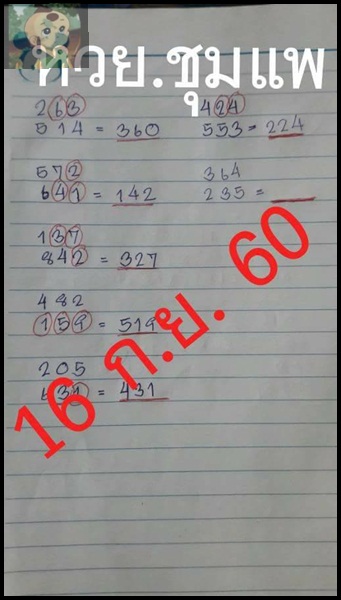 หวย.ชุมแพ
263
514 = 360
572
641 = 142
137
842 = 327
482
159 = 519
205
631 = 431
424
553 = 224
364
235 =
16 ก.ย. 60